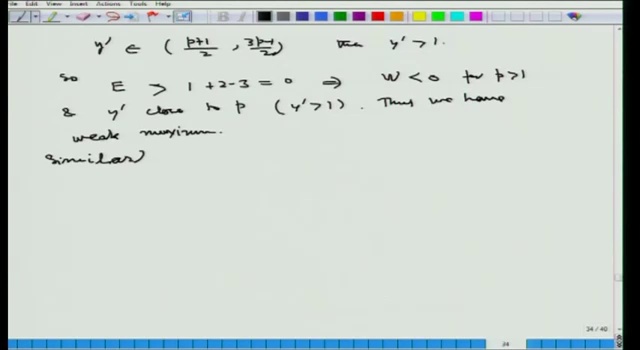 ile Edit View Insert Actions Tools Help
y' ∈ ( p+1/2 , 3p-1/2 ) then y' > 1.
So E > 1 + 2 - 3 = 0 ⇒ W < 0 for p > 1
& y' close to p ( y' > 1 ) . Thus we have
weak maximum.
Similar)
34 / 40
34